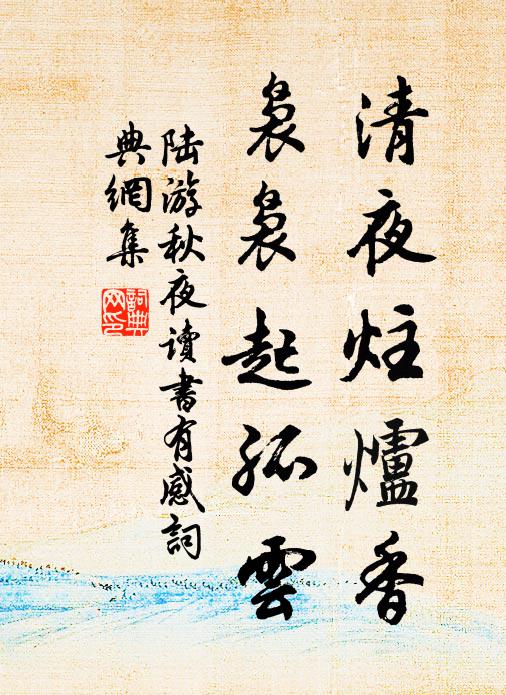 清夜炷爐香
裊裊起孤雲
陸游秋夜讀書有感詞
典網集
詞典
网印